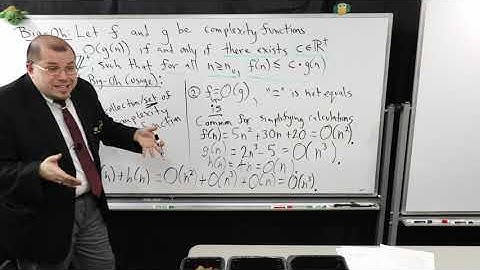 Big-Oh: Let f and g be complexity functions.
O(g(n)) if and only if there exists c∈ℝ⁺
such that for all n≥n₀, f(n) ≤ c·g(n)
Big-Oh (usage):
collection/set of
complexity
function
② f=O(g), "=" is not equals
is
Common for simplifying calculations
f(n)=5n²+30n+20=O(n²).
g(n)=2n³-5=O(n³).
h(n)=4n=O(n).
(n)+h(n)=O(n²)+O(n³)+O(n)=O(n³).